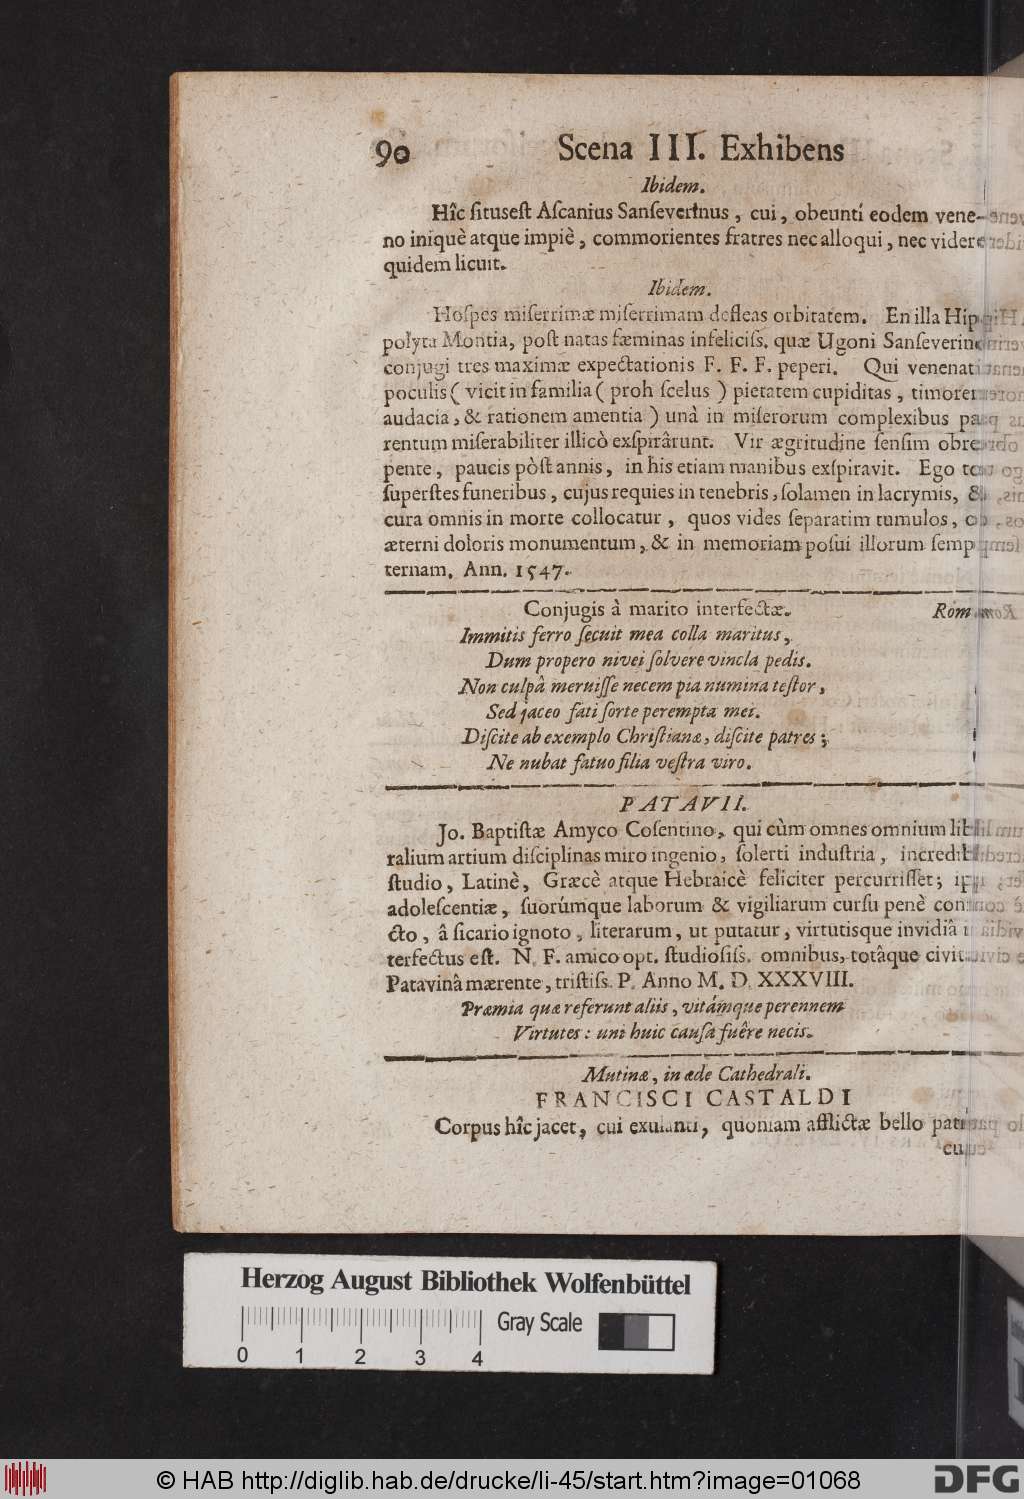 90 Scena III. Exhibens
Ibidem.
Hîc situsest Ascanius Sanseverinus, cui, obeunti eodem vene-
no iniquè atque impiè, commorientes fratres nec alloqui, nec videre
quidem licuit.
Ibidem.
Hospes miserrimæ miserrimam defleas orbitatem. En illa Hip
polyta Montia, post natas fæminas infeliciss. quæ Ugoni Sanseverino
conjugi tres maximæ expectationis F. F. F. peperi. Qui venenati
poculis ( vicit in familia ( proh scelus ) pietatem cupiditas, timorem
audacia, & rationem amentia ) unà in miserorum complexibus pa
rentum miserabiliter illicò exspirârunt. Vir ægritudine sensim obre
pente, paucis pòst annis, in his etiam manibus exspiravit. Ego tot
superstes funeribus, cujus requies in tenebris, solamen in lacrymis, &
cura omnis in morte collocatur, quos vides separatim tumulos, ob
æterni doloris monumentum, & in memoriam posui illorum semp
ternam. Ann. 1547.
Conjugis à marito interfectæ. Rom
Immitis ferro secuit mea colla maritus,
Dum propero nivei solvere vincla pedis.
Non culpâ meruisse necem pia numina testor,
Sed jaceo fati sorte perempta mei.
Discite ab exemplo Christianæ, discite patres;
Ne nubat fatuo filia vestra viro.
PATAVII.
Jo. Baptistæ Amyco Cosentino, qui cùm omnes omnium lib
ralium artium disciplinas miro ingenio, solerti industria, incredibil
studio, Latinè, Græcè atque Hebraicè feliciter percurrisset; ips
adolescentiæ, suorúmque laborum & vigiliarum cursu penè con
cto, â sicario ignoto, literarum, ut putatur, virtutisque invidiâ i
terfectus est. N. F. amico opt. studiosiss. omnibus, totâque civit
Patavinâ mærente, tristiss. P. Anno M. D. XXXVIII.
Præmia quæ referunt aliis, vitámque perennem
Virtutes: uni huic causa fuêre necis.
Mutinæ, in æde Cathedrali.
FRANCISCI CASTALDI
Corpus hîc jacet, cui exulanti, quoniam afflictæ bello patr
cu
Herzog August Bibliothek Wolfenbüttel
Gray Scale
0 1 2 3 4
© HAB http://diglib.hab.de/drucke/li-45/start.htm?image=01068
DFG